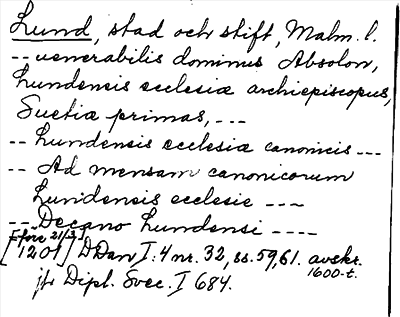 Lund, stad och stift, Malm. l.
-- venerabilis dominus Absolon,
Lundensis ecclesiæ archiepiscopus,
Suetiæ primas, ---
-- Lundensis ecclesiæ canonicis ---
-- Ad mensam canonicorum
Lundensis ecclesie ---
--- Decano Lundensi ----
[före 21/3]
[1201] DDan I:4 nr. 32, ss. 59, 61. avskr.
1600-t.
jfr Dipl. Svec. I 684.